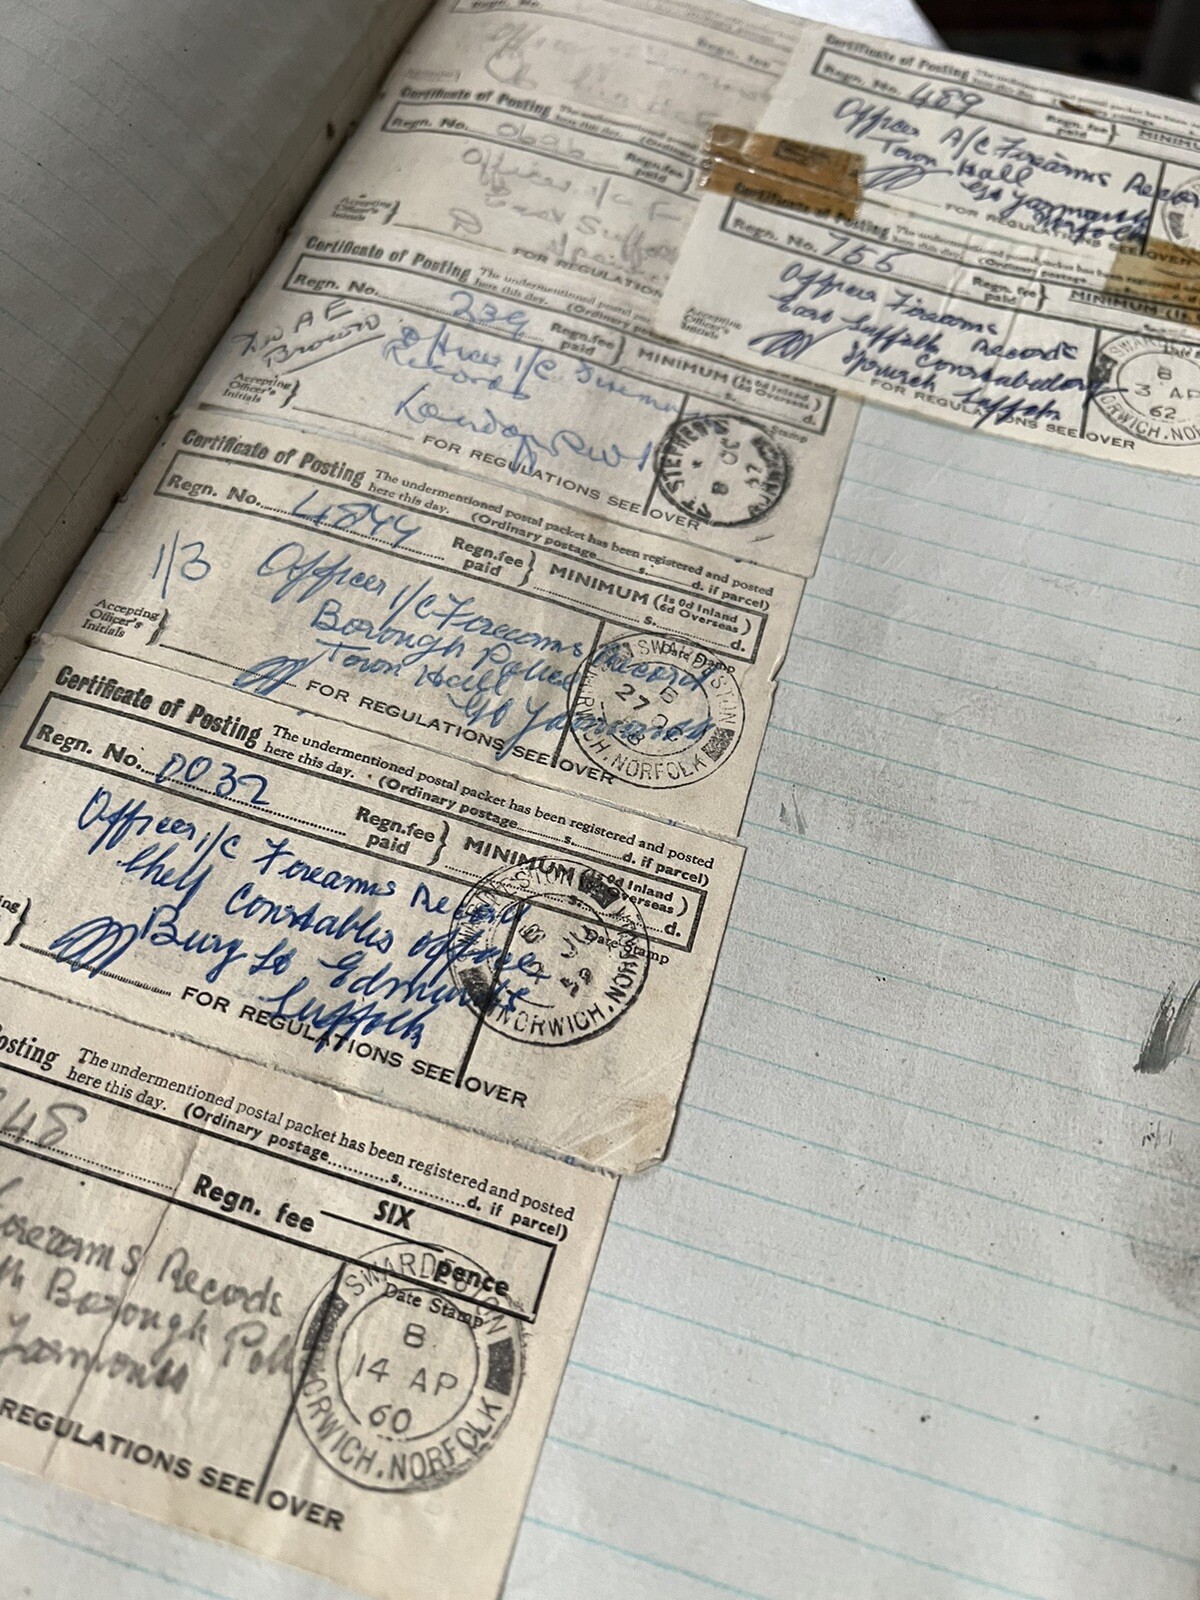 Regn. No.
Regn. fee
Certificate of Posting The undermentioned postal
here this day. (Ordinary
Regn. No. 0696 Regn.fee
paid
Officer i/c F
East Suffolk
Accepting
Officer's
Initials
FOR REGULATION
Certificate of Posting The undermentioned postal pa
here this day. (Ordinary postage
Regn. No. 239 Regn.fee
paid MINIMUM (1s 0d Inland
6d Overseas)
s. d.
A E
Brown
Officer I/C Firearms
Records
London SW1
Accepting
Officer's
Initials
Stamp
ST. STEPHEN'S NORWICH
8 OC
FOR REGULATIONS SEE OVER
Certificate of Posting The undermentioned postal packet has been registered and posted
here this day. (Ordinary postage s. d. if parcel)
Regn. No. 4844 Regn.fee
paid MINIMUM (1s 0d Inland
6d Overseas)
s. d.
1/3
Officer I/C Firearms Record
Borough Police
Town Hall
Gt Yarmouth
Accepting
Officer's
Initials
Date Stamp
SWARDESTON
6
27 OC
NORWICH, NORFOLK
FOR REGULATIONS SEE OVER
Certificate of Posting The undermentioned postal packet has been registered and posted
here this day. (Ordinary postage s. d. if parcel)
Regn. No. 0032 Regn.fee
paid MINIMUM (1s 0d Inland
Overseas)
s. d.
Officer i/c Firearms Record
Chief Constables office
Bury St Edmunds
Suffolk
ing
Date Stamp
JU
59
NORWICH, NOR
FOR REGULATIONS SEE OVER
osting The undermentioned postal packet has been registered and posted
here this day. (Ordinary postage s. d. if parcel)
48
Regn. fee SIX
pence
Firearms Records
th Borough Poli
Yarmouth
Date Stamp
SWARDESTON
8
14 AP
60
NORWICH, NORFOLK
REGULATIONS SEE OVER
Certificate of Posting The undermentioned postal packet
here this day. (Ordinary post
Regn. No. 489 Regn. fee
paid MINIMU
Officer A/C Firearms Recor
Town Hall
Gt Yarmouth
Norfolk
FOR REGULATIONS SEE OVER
Certificate of Posting The undermentioned postal packet has been registered
here this day. (Ordinary postage
Regn. No. 755 Regn. fee
paid MINIMUM (1s
Officer Firearms
East Suffolk Records
Constabulary
Ipswich Suffolk
Accepting
Officer's
Initials
SWARD
8
3 AP
62
NORWICH, NO
FOR REGULATIONS SEE OVER